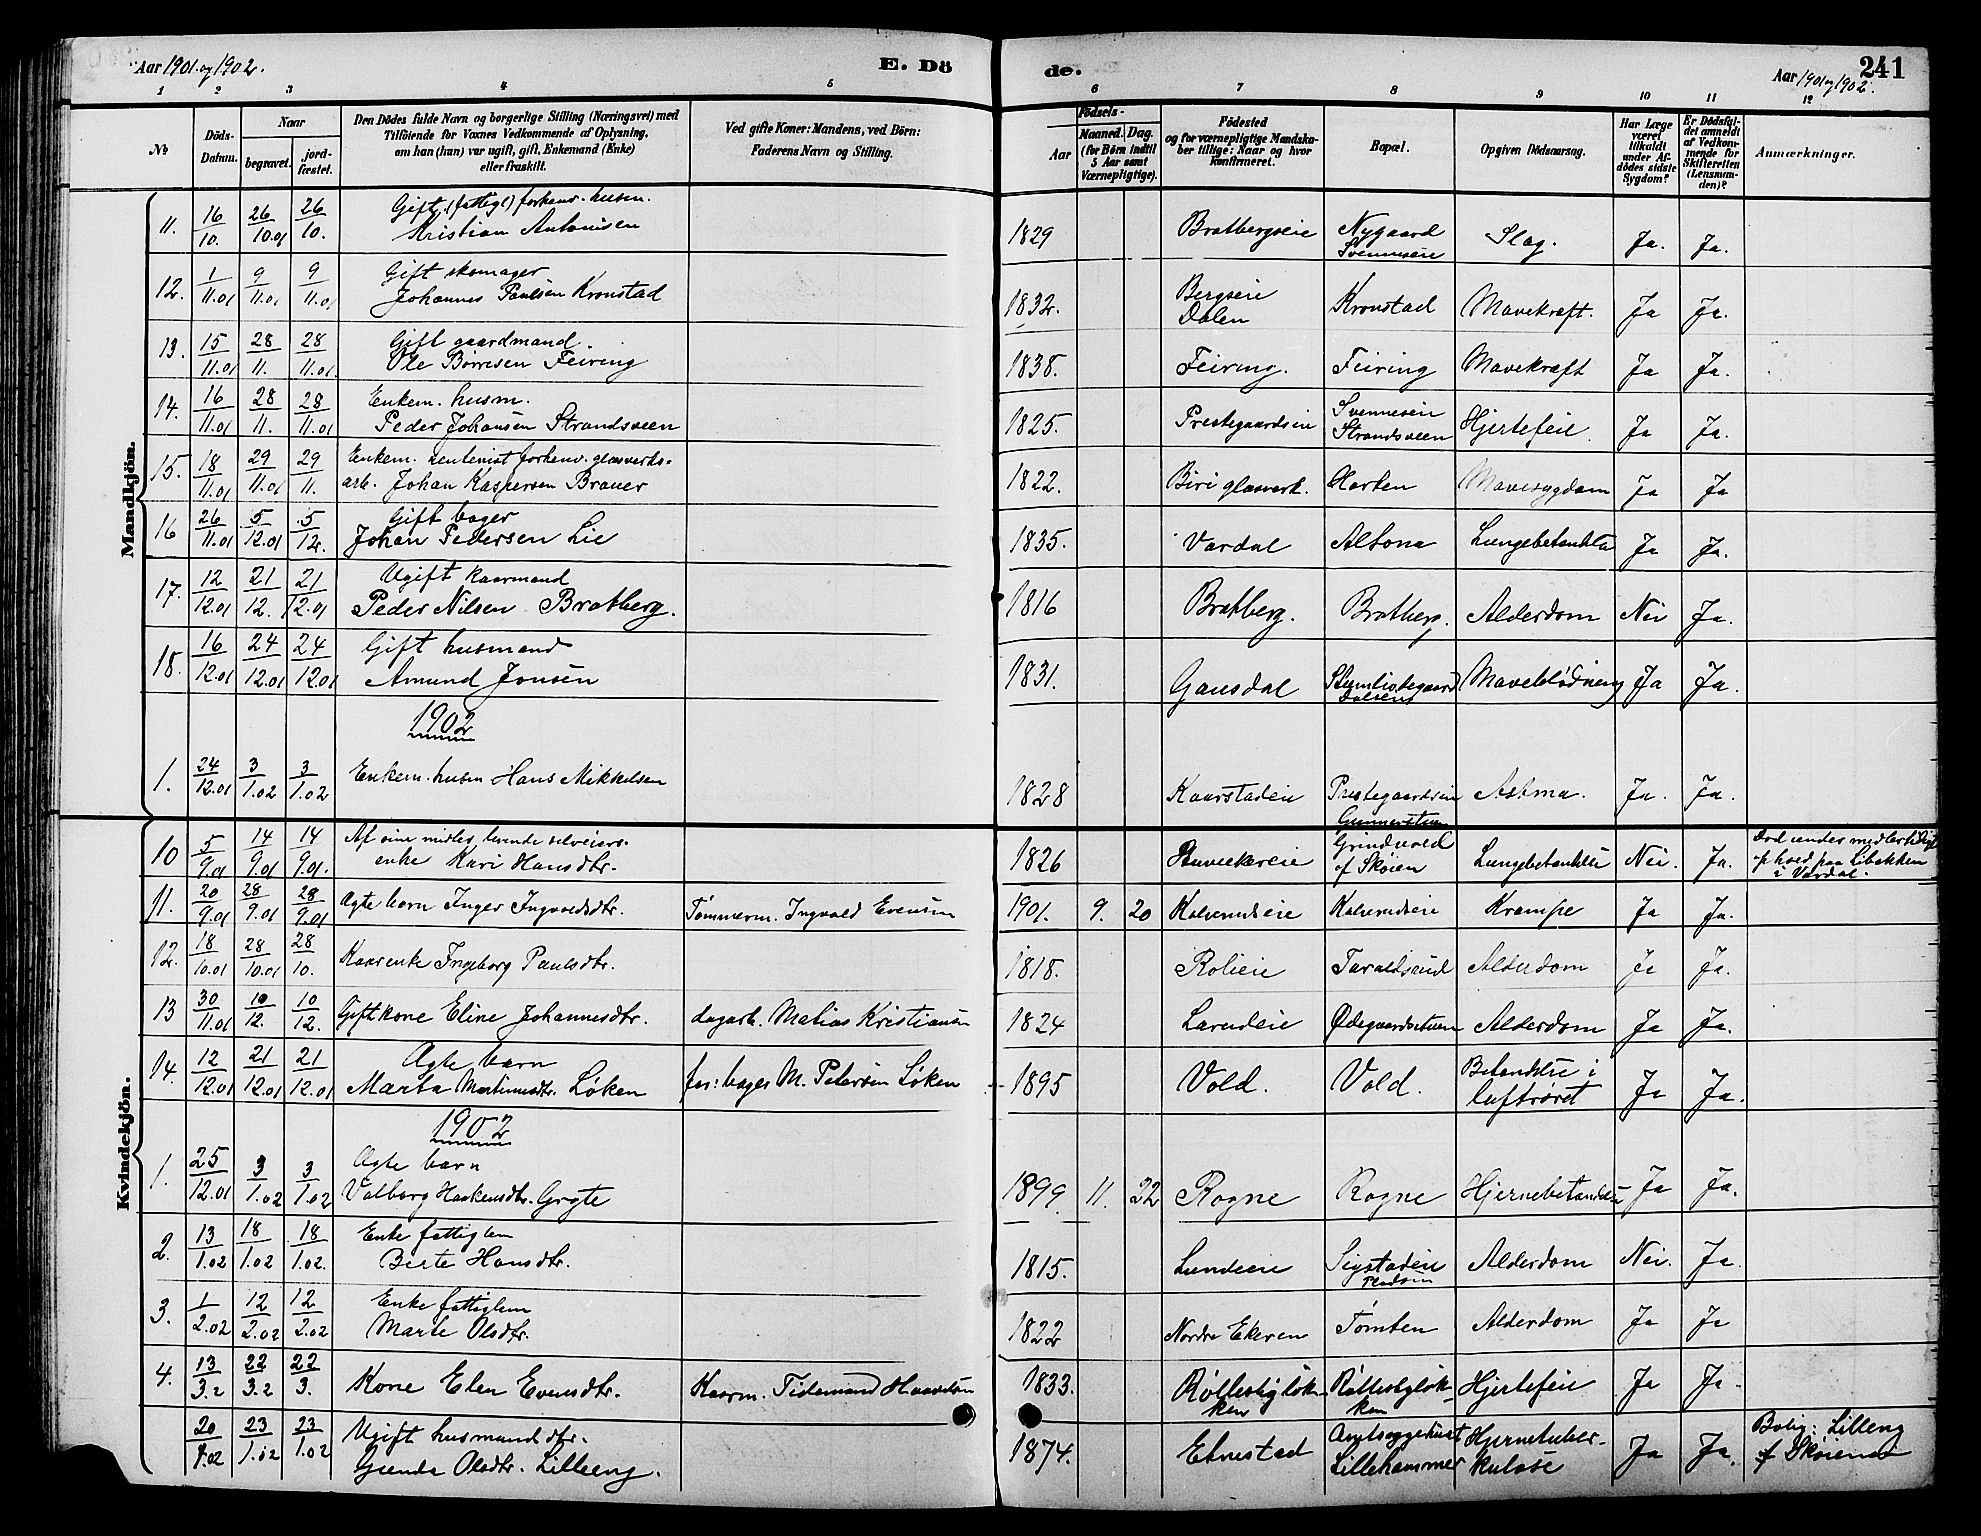 Aar 1901 og 1902.
E. Dö
de.
Aar 1901 og 1902.
241
1 2 3 4 5 6 7 8 9 10 11 12
No.
Döds-Datum.
Naar
begravet.
jord-fæstet.
Den Dödes fulde Navn og borgerlige Stilling (Næringsvei) med
Tilföiende for Voxnes Vedkommende af Oplysning,
om han (hun) var ugift, gift, Enkemand (Enke)
eller fraskilt.
Ved gifte Koner: Mandens, ved Börn:
Faderens Navn og Stilling.
Födsels-
Aar
Maaned. Dag.
(for Börn indtil
5 Aar samt
Værnepligtige).
Födested
og for værnepligtige Mandska-
ber tillige: Naar og hvor
konfirmeret.
Bopæl.
Opgiven Dödsaarsag.
Har Læge
været
tilkaldt
under Af-
dödes sidste
Sygdom?
Er Dödsfal-
det anmeldt
af Vedkom-
mende for
Skifteretten
(Lensman-
den)?
Anmærkninger.
Mandkjön.
11. 16/10. 26/10.01 26/10. Gift, (fattigl) forhenv. husm. Kristian Antonisen 1829 Bratbergseie Nygaard Svenneseie Slag. Ja. Ja.
12. 1/11.01 9/11.01 9/11.01 Gift skomager Johannes Paulsen Kronstad 1832. Bergseie Dalen Kronstad Mavekræft. Ja Ja.
13. 15/11.01 28/11. 28/11.01 Gift gaardmand. Ole Børresen Feiring 1838. Feiring. Feiring Mavekræft Ja Ja.
14. 16/11.01 28/11. 28/11.01 Enkem. husm. Peder Johansen Strandsveen 1825. Prestegaardseie Svenneseie Strandsveen Hjertefeil. Ja Ja.
15. 18/11.01 29/11.01 29/11. Enkem. rentenist forhenv. glasverks= arb. Johan Kaspersen Brauer 1822. Biri glasverk. Harten Mavesygdom Ja Ja
16 26/11.01 5/12.01 5/12. Gift bager Johan Pedersen Lie 1835. Vardal Altona Lungebetændelse Ja Ja.
17. 12/12.01 21/12. 21/12.01 Ugift kaarmand Peder Nilsen Bratberg. 1816 Bratberg. Bratberg. Alderdom Nei Ja.
18. 16/12.01 24/12.01 24/12.01 Gift husmand Amund Jonsen 1831. Gausdal Dalseng Maveblødning Ja Ja.
1902
1. 24/12.01 3/1.02 3/1.02 Enkem. husm Hans Mikkelsen 1828 Kaarstadeie Prestegaardseie Gunnerstuen Astma. Ja. Ja.
Kvindekjön.
10 5/9.01 14/9.01 14/9.01. Af sine midler levende selveiers. enke Kari Hansdtr. 1826 Grindvold af Skøien Lungebetændelse Nei. Ja. Død under midlertidigt ophold paa Libakken i Vardal.
11. 20/9.01 28/9.01 28/9.01 Ægte barn Inger Ingvoldsdtr. Tømmerm. Ingvald Evensen 1901. 9. 20 Kalverudseie Kalverudseie Krampe Ja Ja.
12. 18/10.01 28/10.01 28/10. Kaarenke Ingeborg Paulsdtr. 1818. Rolieie Taraldsrud Alderdom Ja Ja.
13 30/11.01 10/12. 10/12. Gift kone Eline Johannesdtr. dagarb. Matias Kristiansen 1824 Larudeie Ødegaardstuen Alderdom Ja Ja.
14. 12/12.01 21/12.01 21/12.01 Ægte barn Marta Martinusdtr. Løken far: bager M. Petersen Løken 1895 Vold. Vold. Betændelse i luftrøret Ja Ja.
1902
1. 25/12.01 3/1.02 3/1.02 Ægte barn Valborg Haakensdtr. Gryte 1899. 11. 22 Rogne Rogne Hjernebetændelse Ja Ja.
2. 13/1.02 18/1.02 18/1.02. Enke fattiglem Berte Hansdtr. 1815. Lundeeie Sigstadeie Alderdom Nei. Ja.
3. 1/2.02 12/2.02 12/2.02 Enke fattiglem Marte Olsdtr. 1822 Nordre Ekeren Tømten Alderdom Ja Ja
4. 13/3.2 22/3.2 22/3. Kone Elen Evensdtr. Kaarm. Tidemand Haavelsen 1833. Røllestigløkken Røllestigløkken Hjertefeil Ja Ja.
20/1.02 23/1.02 23/1.02 Ugift husmandsdtr. Gunda Olsdtr. Lilleeng. 1874. Elvestad Amtssygehuset Lillehammer Hjernetuberkulose Ja Ja. Bolig: Lilleng af Skøien